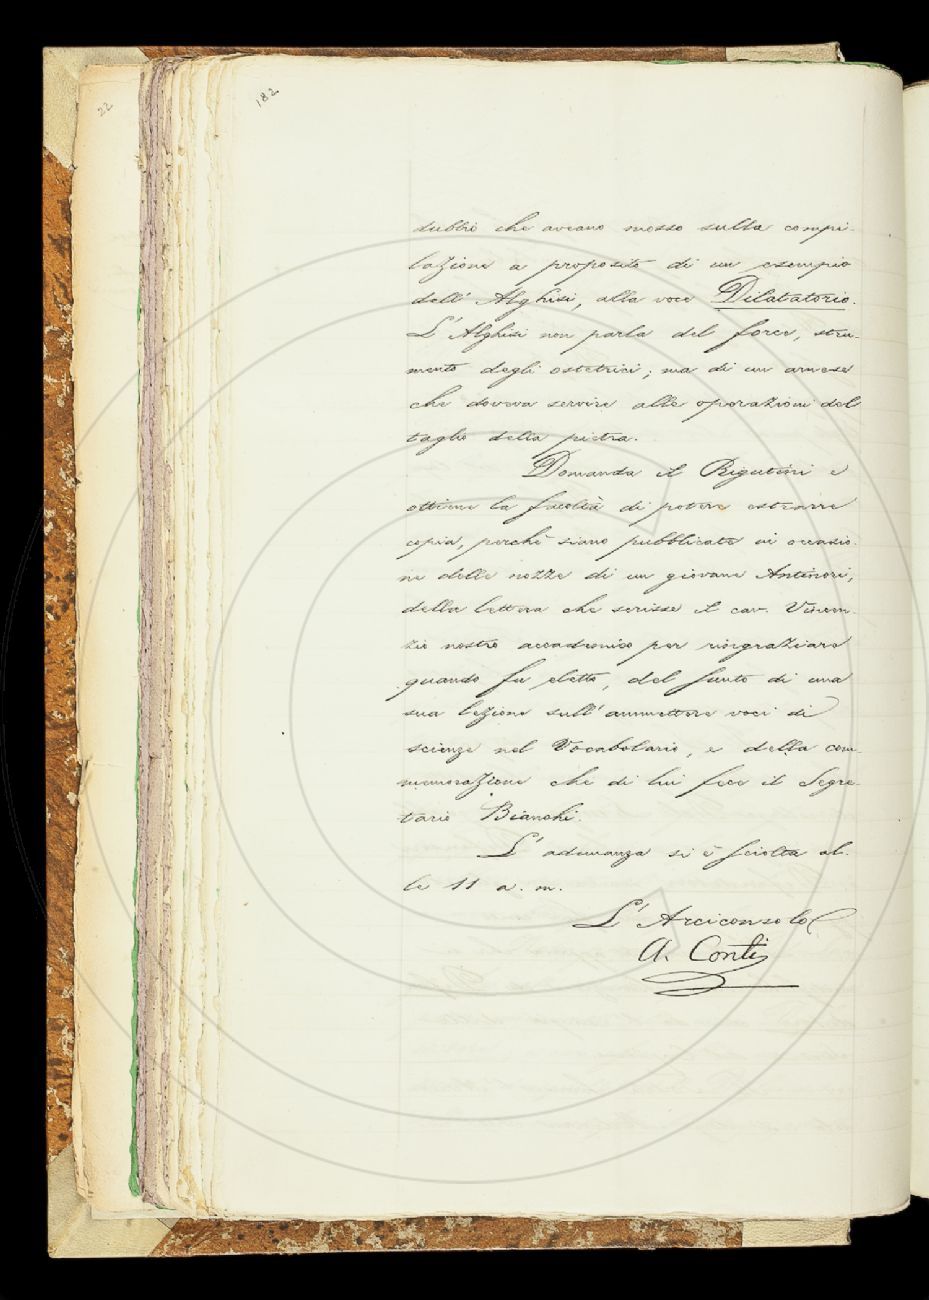 22
182
dubbio che aveano mosso sulla compi-
lazione a proposito di un esempio
dell' Alghisi, alla voce Dilatatorio.
L' Alghisi non parla del force, stru-
mento degli ostetrici; ma di un arnese
che doveva servire alle operazioni del
taglio della pietra.
Domanda il Rigutini e
ottiene la facoltà di potere estrarre
copia, perchè siano pubblicate in occasio-
ne delle nozze di un giovane Antinori,
della lettera che scrisse il cav. Vincen-
zio nostro accademico per ringraziare
quando fu eletto, del sunto di una
sua lezione sull' ammettere voci di
scienze nel Vocabolario, e della com-
memorazione che di lui fece il Segre-
tario Bianchi.
L' adunanza si è sciolta al-
le 11 a. m.
L' Arciconsolo
A. Conti